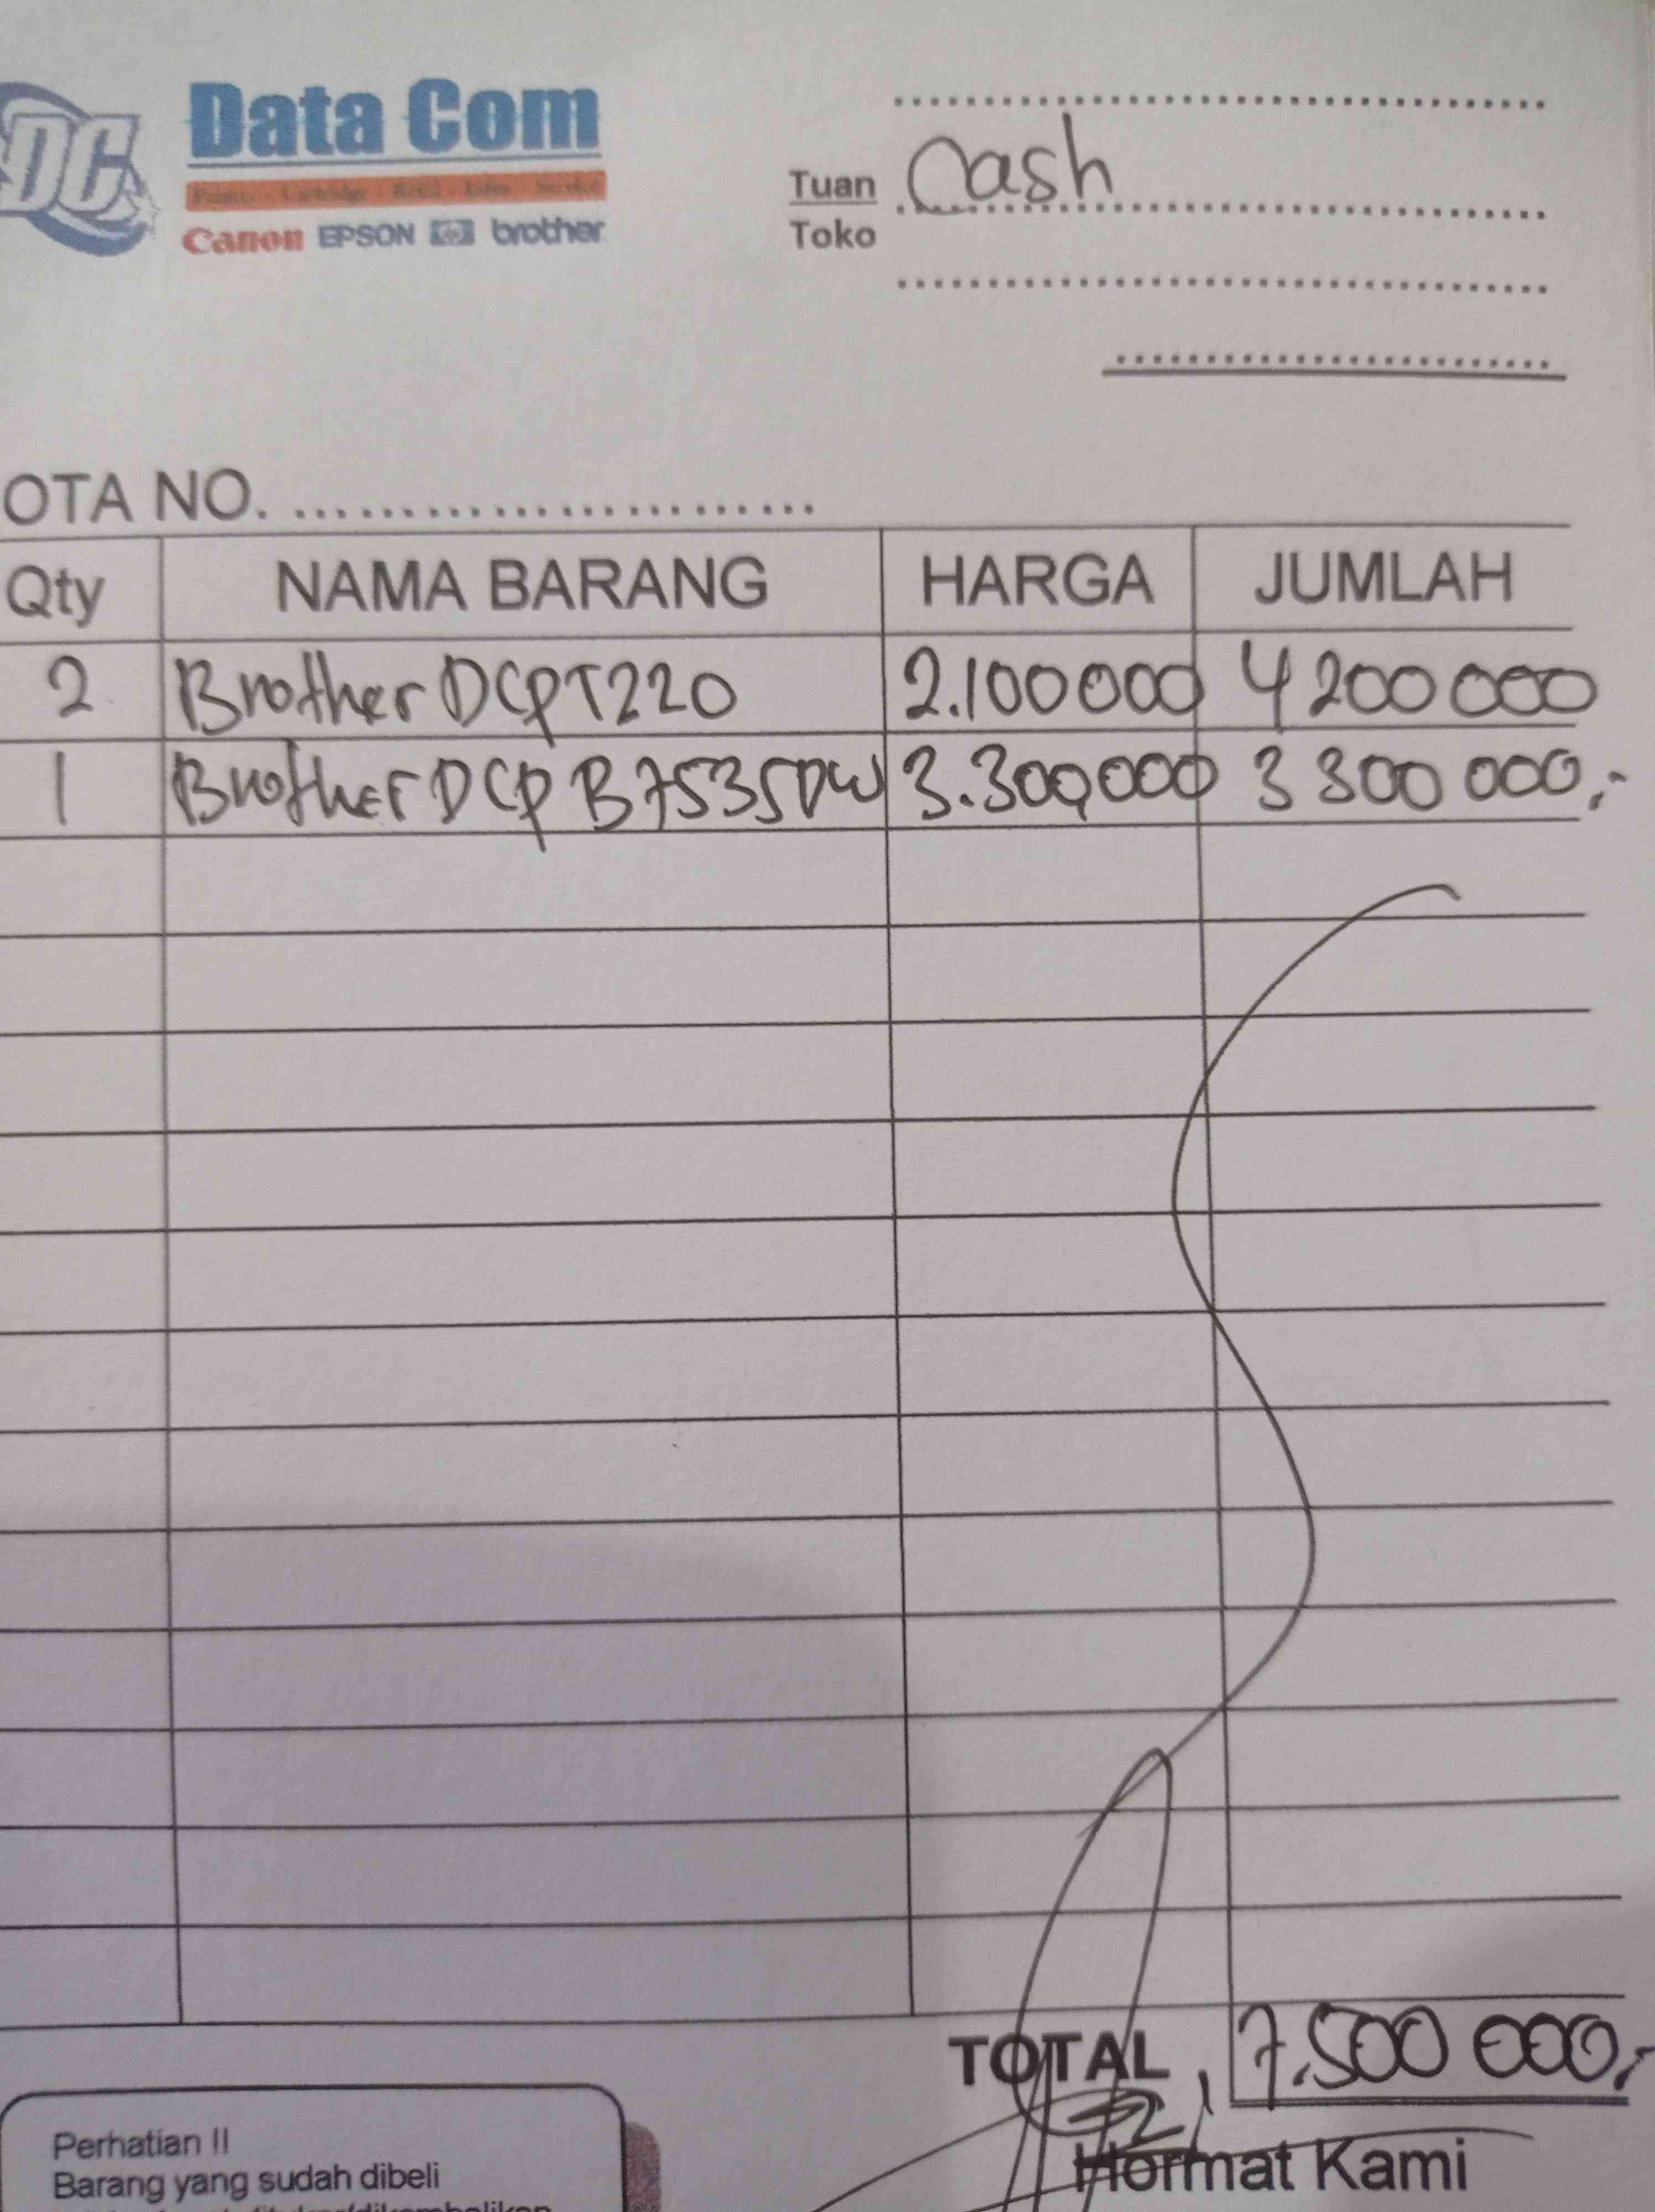 DC
Data Com
Printer - Cartridge - Refill - Infus - Service
Canon EPSON hp brother
Tuan Cash
Toko
OTA NO.
Qty NAMA BARANG HARGA JUMLAH
2 Brother DCPT220 2.100000 4 200 000
1 Brother DCP B7535DW 3.300,000 3 300 000,-
TOTAL 7.500 000,-
Hormat Kami
Perhatian !!
Barang yang sudah dibeli